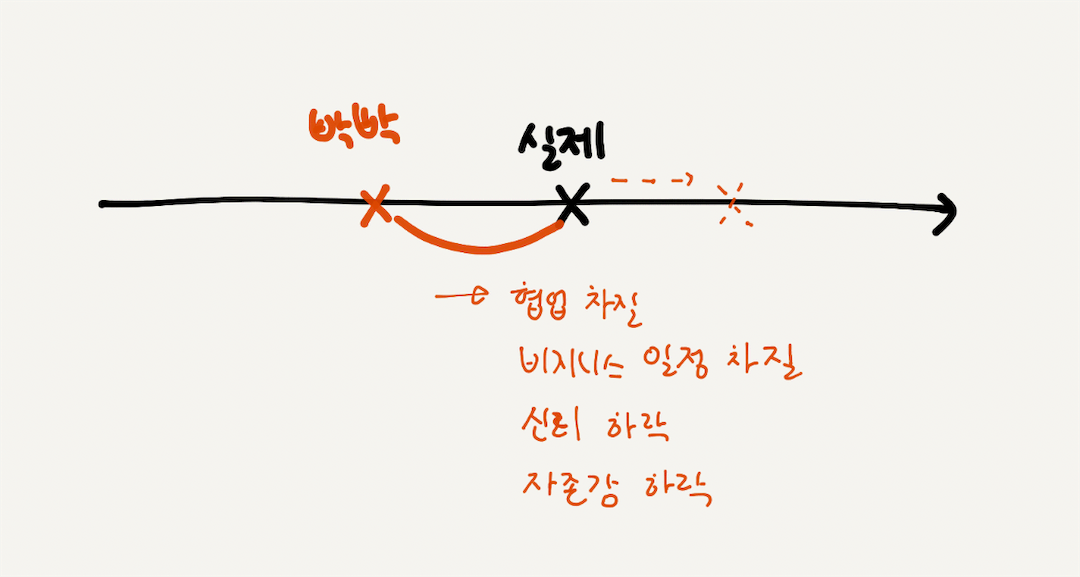 빡빡
실제
협업 차질
비지니스 일정 차질
신뢰 하락
자존감 하락